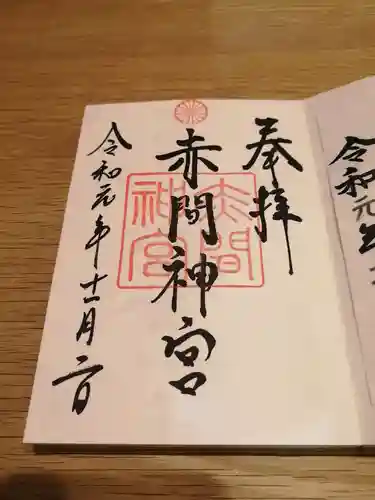 奉拝
赤間神宮
赤間神宮
令和元年十一月二日
令和元年